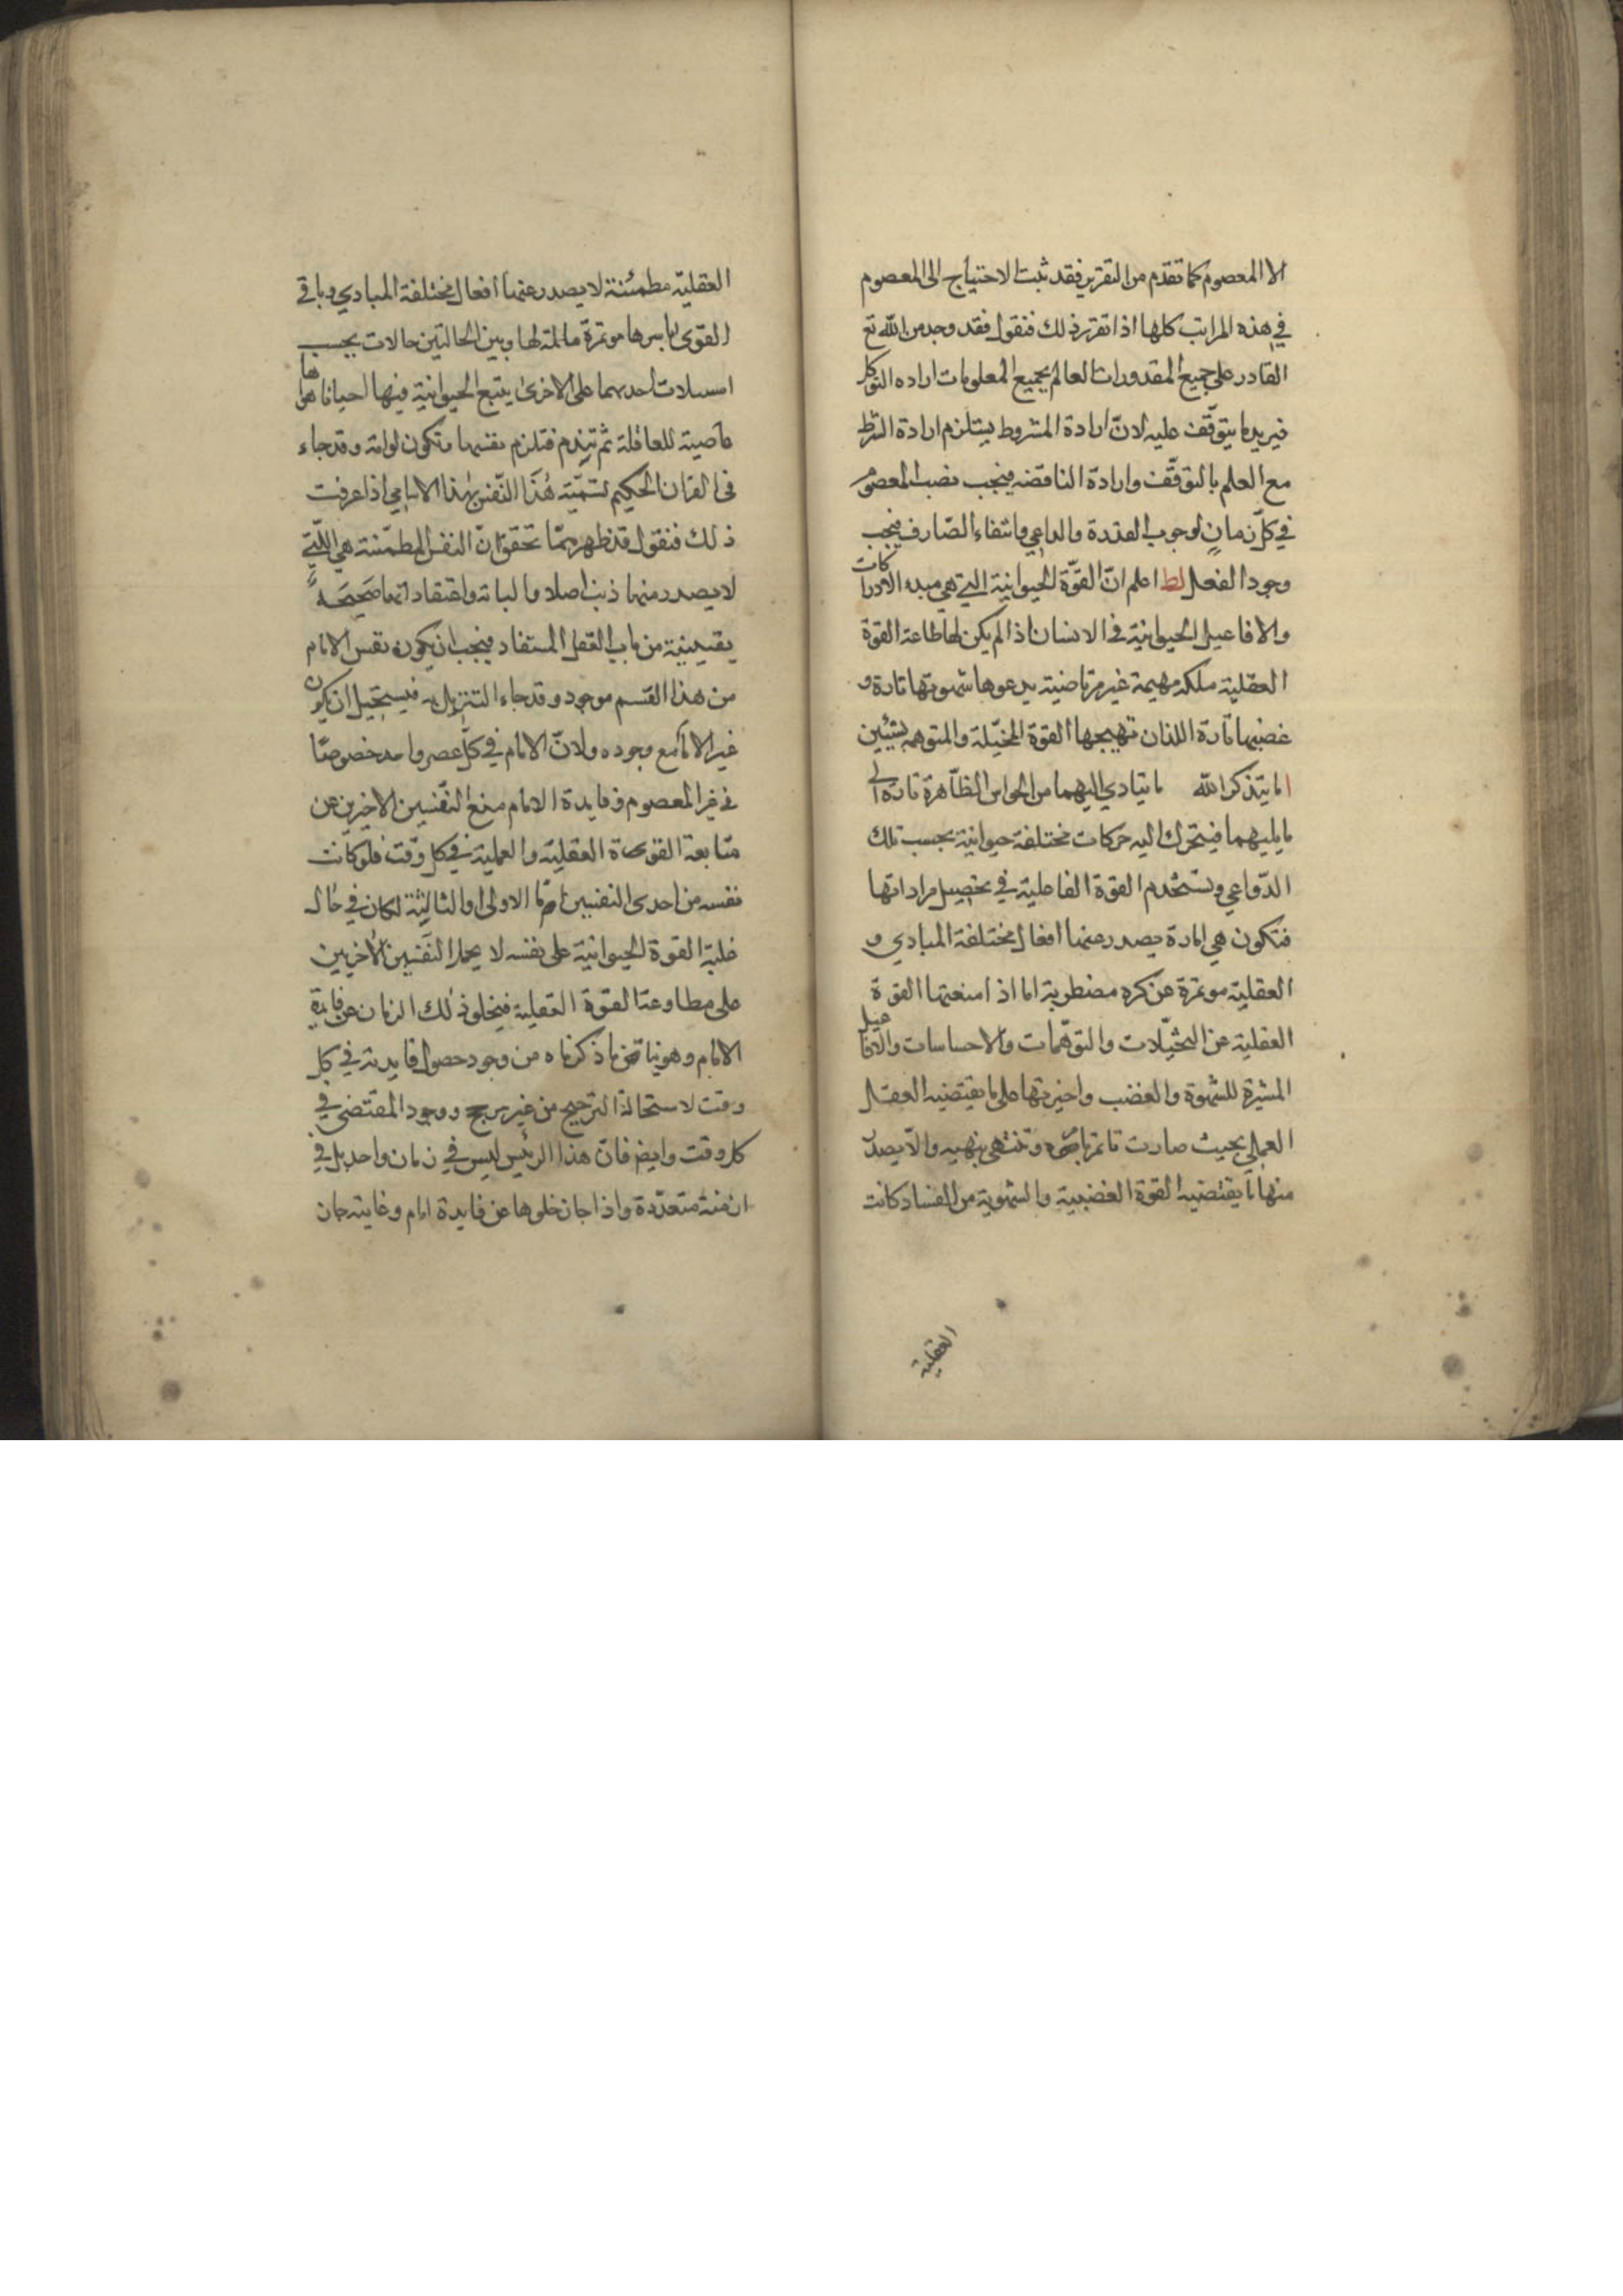 الا المعصوم كما تقدم من التقرير فقد ثبت الاحتياج الى المعصوم
في هذه المراتب كلها اذا تقرر ذلك فنقول فقد وجد من الله تع
القادر على جميع المقدورات العالم بجميع المعلومات اراده التوكل
فيريد ما يتوقف عليه لانّ ارادة المشروط يستلزم ارادة الشرط
مع العلم بالتوقّف وارادة الناقضه فيجب نصب المعصوم
في كلّ زمان لوجوب القدرة والداعي وانتفاء الصّارف فيجب
وجود الفعل لط اعلم انّ القوّة الحيوانية التي هي مبدء الادراكات
والافاعيل الحيوانية في الانسان اذا لم يكن لها طاعة القوة
العقلية ملكة بهيمة غير مرتاضية يدعوها شهوتها تارة و
غضبها تارة اللذان تهيجها القوة المخيّلة والمتوهمه بشيئين
اما يتذكر الله ما يتادي اليهما من الحواس الظّاهرة تارة الى
ما يليهما فيتحرك اليه حركات مختلفة حيوانية بحسب تلك
الدّواعي وتستخدم القوة الفاعلية في تحصيل مراداتها
فتكون هي امارة يصدر عنها افعال مختلفة المبادي و
العقليّة موتمرة عن كره مضطربة اما اذا منعتها القوة
العقلية عن التخيّلات والتوهّمات والاحساسات والافاعيل
المثيرة للشهوة والغضب واخيرتها على ما يقتضيه العقل
العملي بحيث صارت تاتمر بامره وتنتهى بنهيه والّا يصدر
منها ما يقتضيه القوة الغضبية والشهوية من الفساد كانت
العقلية
العقليّة مطمئنة لا يصدر عنها افعال مختلفة المبادي وباقي
القوى باسرها موتمرّة مالمة لها وبين الحالتين حالات بحسب
استيلات احديهما على الاخرى يتبع الحيوانية فيها احيانا هواها
عاصية للعاقلة ثم تندم فتلزم نفسها وتكون لوامة وقد جاء
في القران الحكيم تسميّته هذا النّفس بهذا الاسامي اذا عرفت
ذلك فنقول قد ظهر ممّا تحقق انّ النفس المطمئنة هي الّتي
لا يصدر منها ذنب اصلا والباتة واعتقاداتها صحيحة
يقينية من باب العقل المستفاد فيجب ان يكون نفس الامام
من هذا القسم موجود وقد جاء التنزيل به فيستحيل ان يكون
غير الامام مع وجوده ولانّ الامام في كلّ عصر واحد خصوصًا
في غير المعصوم وفايدة الامام منع النّفسين الاخيرين عن
متابعة القوى العقلية والعملية في كل وقت فلو كانت
نفسه من احدى النفسين امّا الاولى او الثالثة لكان في حال
غلبة القوة الحيوانية على نفسه لا يحمل النفسين الاخريين
على مطاوعة القوة العقلية فيخلو ذلك الزمان عن فايدة
الامام وهو يناقض ما ذكرناه من وجود حصول فايدته في كل
وقت لاستحالة الترجيح من غير مرجح ووجود المقتضى في
كل وقت وايضا فانّ هذا الرئيس ليس في زمان واحد بل في
ازمنة متعدّدة واذا جاز خلوها عن فايدة امام وغايته جان